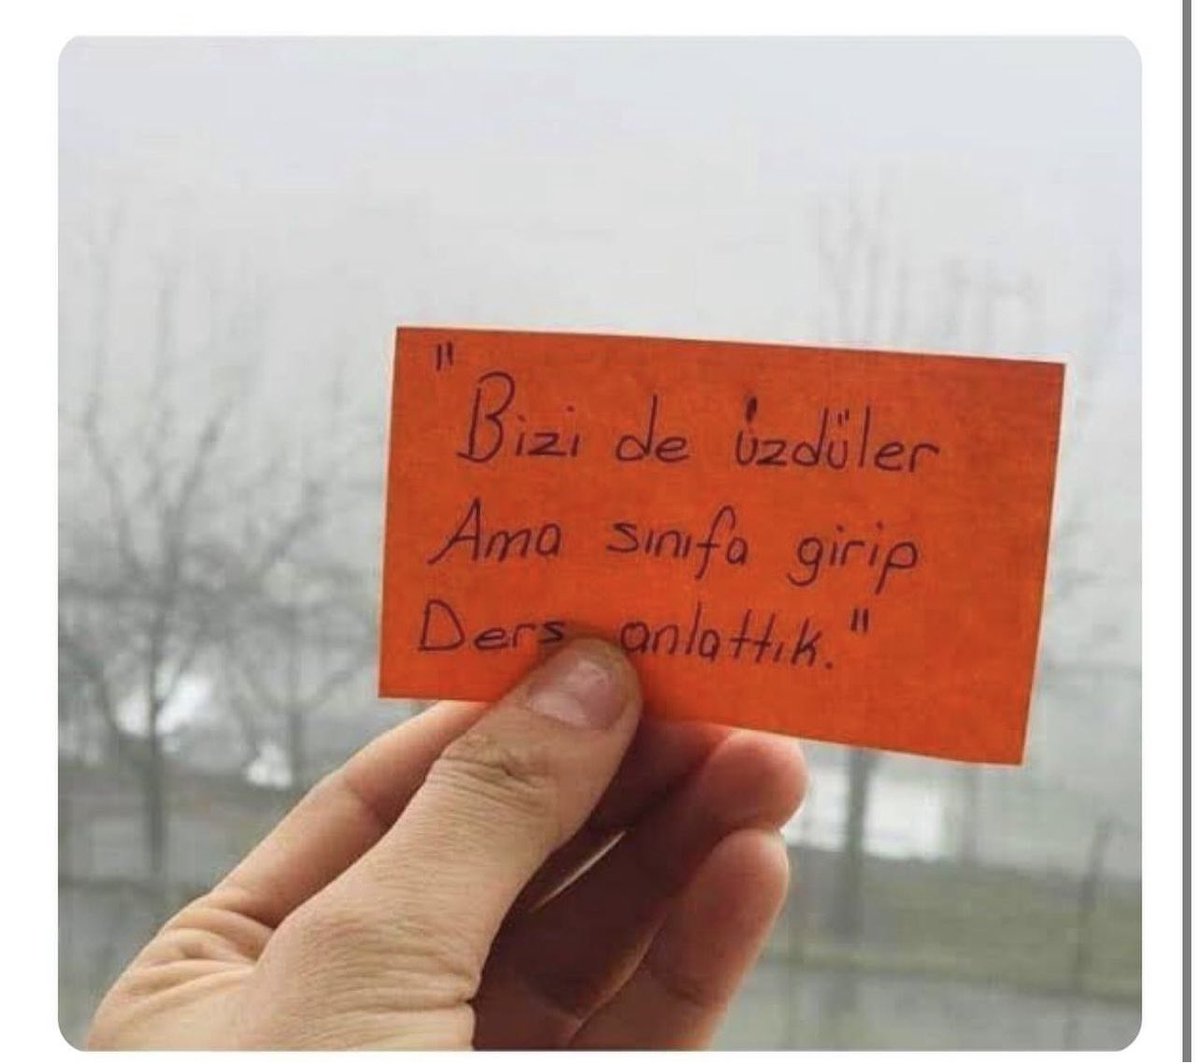 "Bizi de üzdüler
Ama sınıfa girip
Ders anlattık."